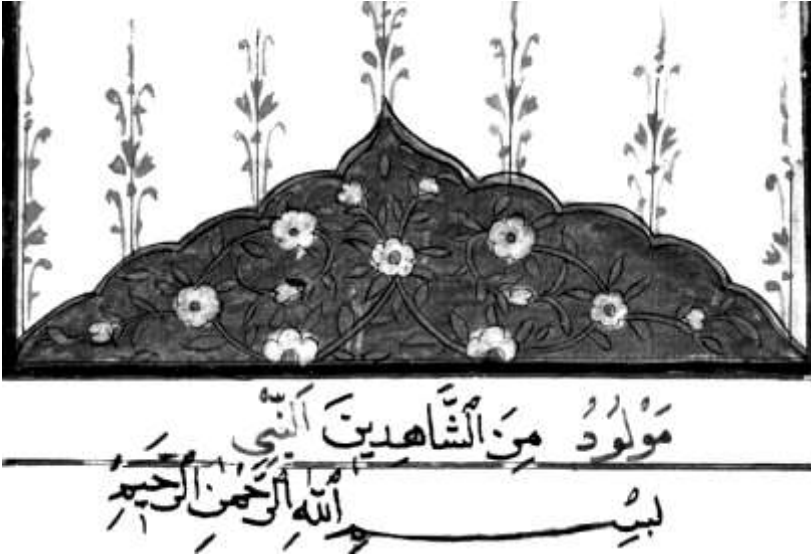 مَوْلُودُ مِنَ ٱلشَّاهِدِينَ اَلنَّبِيِّ
بِسْمِ ٱللَّهِ ٱلرَّحْمٰنِ ٱلرَّحِيمِ